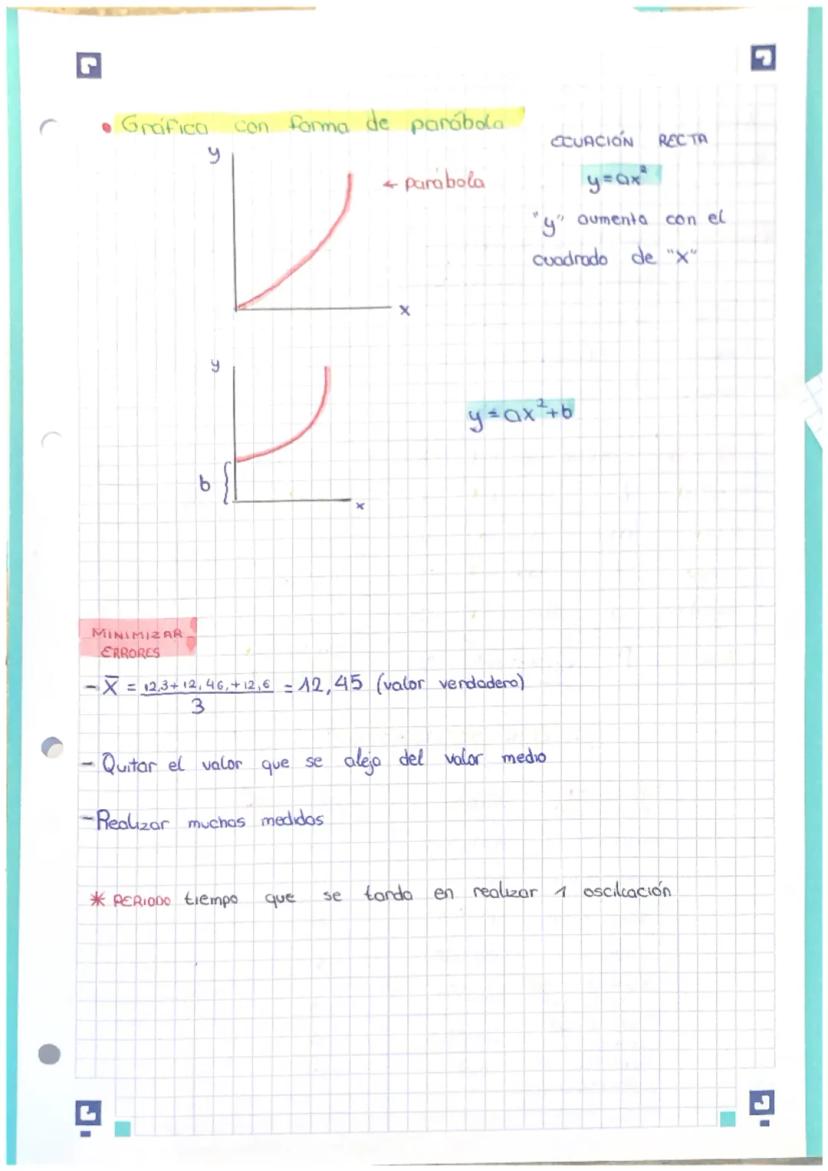 • Gráfica con forma de parábola
ECUACIÓN RECTA
y
← parábola
y=ax²
"y" aumenta con el
cuadrado de "x"
x
y
y=ax²+b
b
x
MINIMIZAR
ERRORES
- X̅ = 12,3+12,46,+12,6 / 3 = 12,45 (valor verdadero)
- Quitar el valor que se aleja del valor medio
- Realizar muchas medidas
* PERIODO tiempo que se tarda en realizar 1 oscilcación